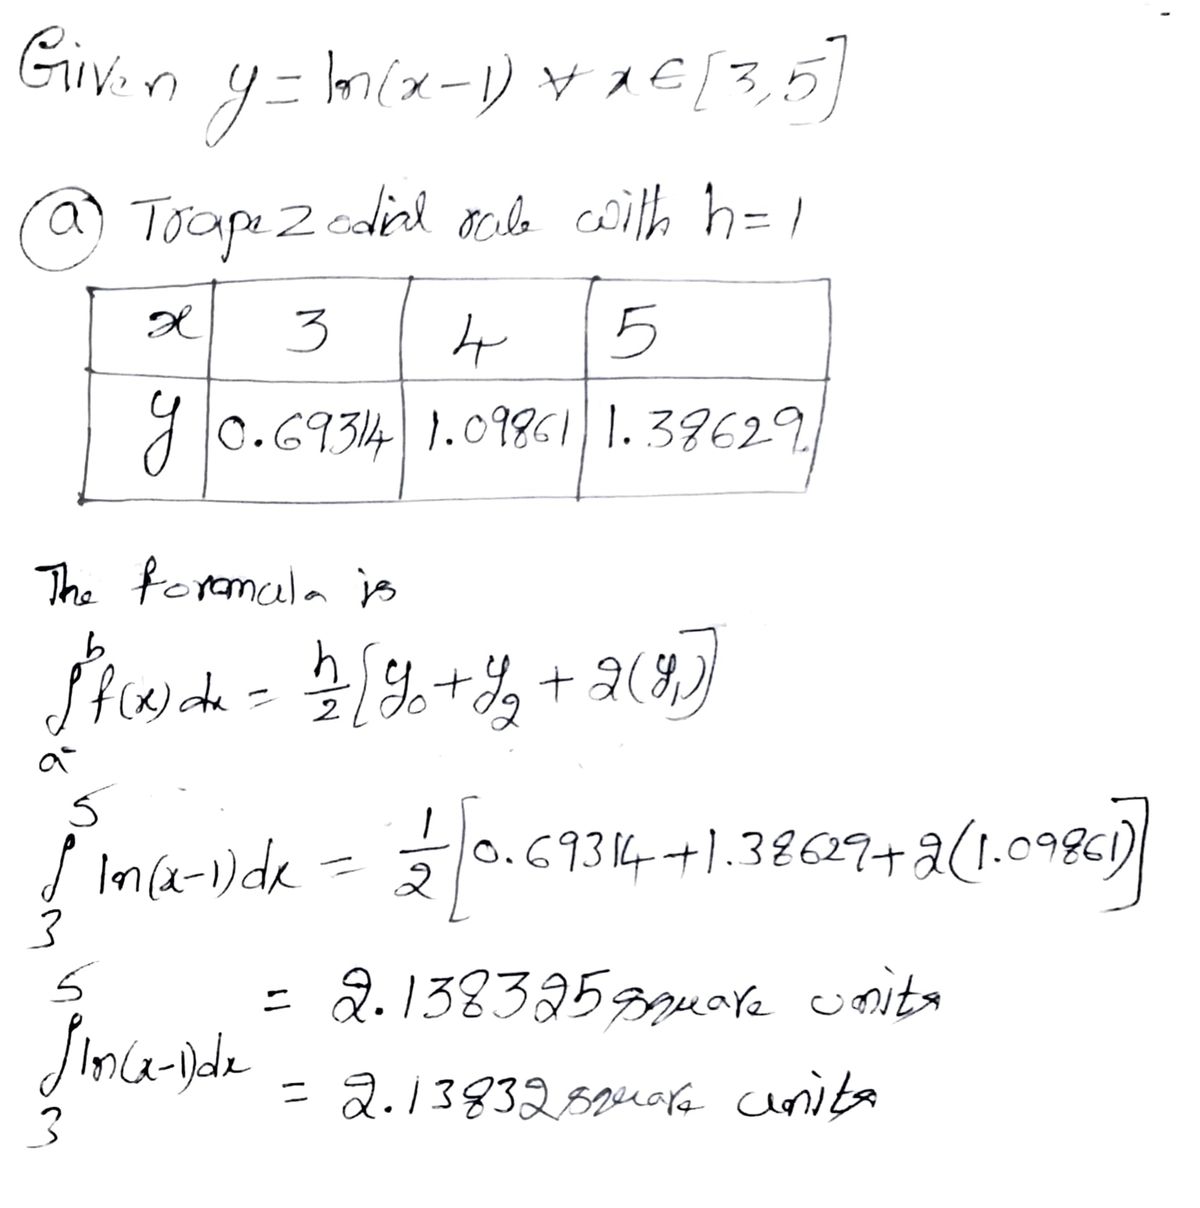 Given y = ln(x-1) ∀ x ∈ [3,5]
(a) Trapezodial rule with h=1
x 3 4 5
y 0.69314 1.09861 1.38629
The formula is
∫_a^b f(x) dx = h/2 [y₀ + y₂ + 2(y₁)]
∫_3^5 ln(x-1) dx = 1/2 [0.69314 + 1.38629 + 2(1.09861)]
= 2.138325 square units
∫_3^5 ln(x-1) dx = 2.13832 square units